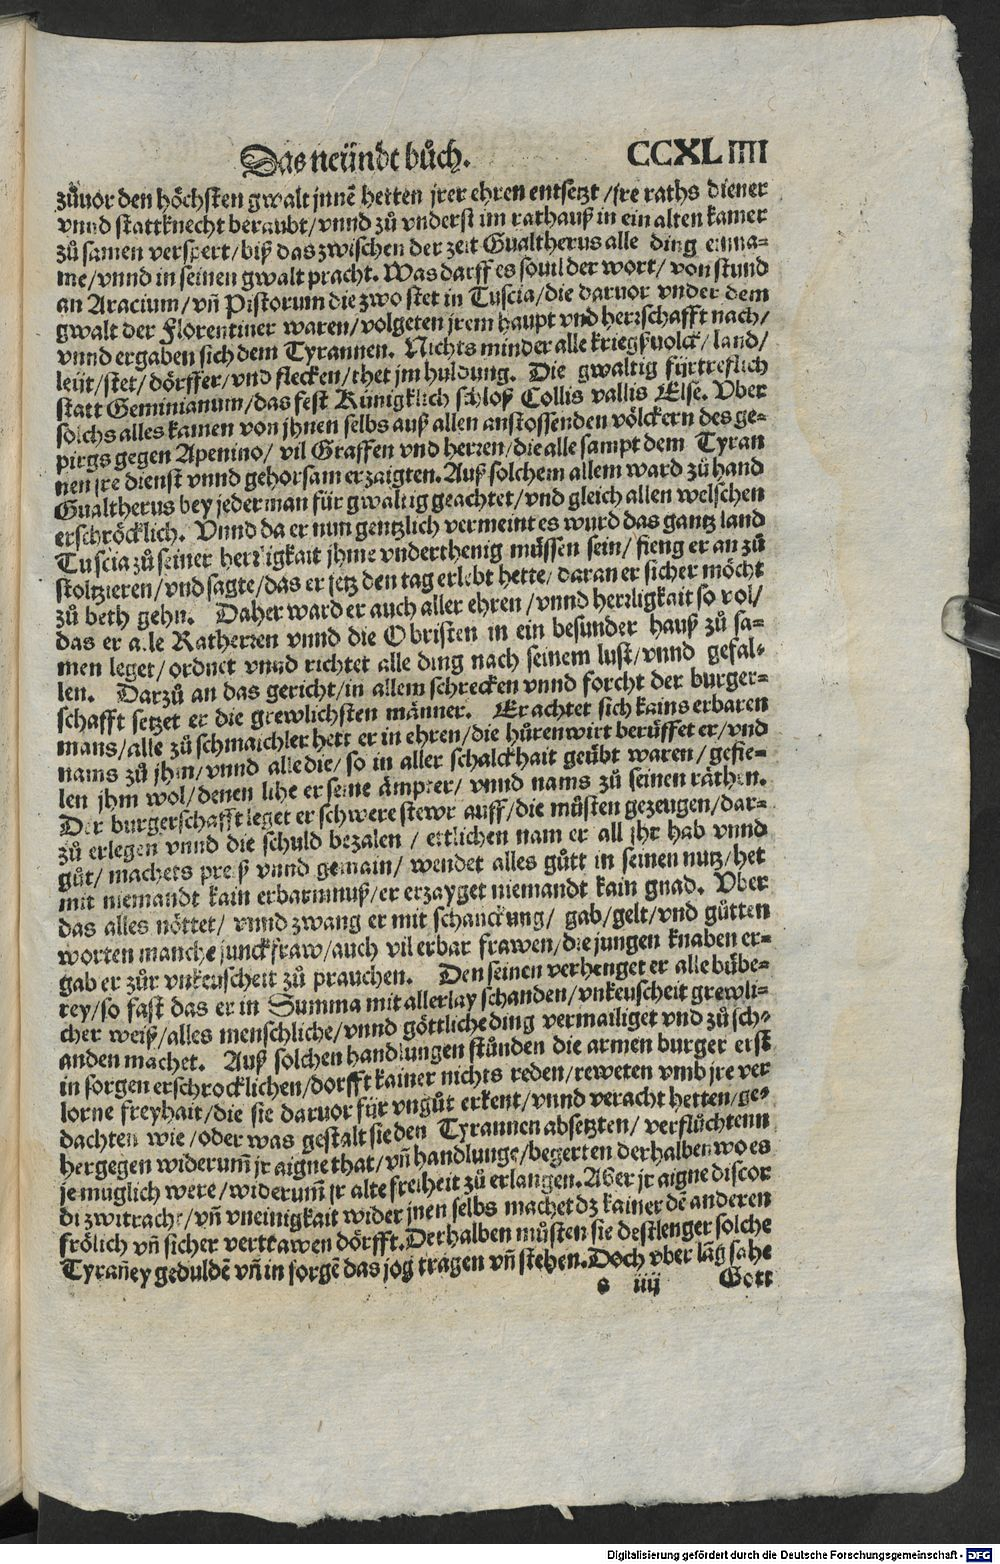 Das neündt bůch. CCXLIIII
zůuor den höchsten gwalt jnnẽ hetten jrer ehren entsetzt /jre raths diener
vnnd stattknecht beraubt/vnnd zů vnderst im rathauß in ein alten kamer
zů samen verspert/biß das zwischen der zeit Gualtherus alle ding einna-
me/vnnd in seinen gwalt pracht. Was darff es souil der wort/ von stund
an Aracium/ vñ Pistorum die zwo stet in Tuscia/die daruor vnder dem
gwalt der Florentiner waren/volgeten jrem haupt vnd herrschafft nach/
vnnd ergaben sich dem Tyrannen. Nichts minder alle kriegßuolck/ land/
leüt/stet/dörffer/vnd flecken/thet jm huldung. Die gwaltig fürtreflich
statt Geminianum/das fest Künigklich schloß Collis vallis Else. Vber
solchs alles kamen von jhnen selbs auß allen anstossenden völckern des ge-
pirgs gegen Apenino/ vil Graffen vnd herren/die alle sampt dem Tyran
nen jre dienst vnnd gehorsam erzaigten. Auß solchem allem ward zů hand
Gualtherus bey jederman für gwaltig geachtet/vnd gleich allen welschen
erschröcklich. Vnnd da er nun gentzlich vermeint es wurd das gantz land
Tuscia zů seiner herrligkait jhme vnderthenig müssen sein/ fieng er an zů
stoltzieren/vnd sagte/das er jetz den tag erlebt hette/ daran er sicher möcht
zů beth gehn. Daher ward er auch aller ehren/vnnd herrligkait so vol/
das er alle Ratherren vnnd die Obristen in ein besunder hauß zů sa-
men leget/ordnet vnnd richtet alle ding nach seinem lust/vnnd gefal-
len. Darzů an das gericht/in allem schrecken vnnd forcht der burger-
schafft setzet er die grewlichsten männer. Er achtet sich kains erbaren
mans/alle zů schmaichler hett er in ehren/die hůrenwirt berüffet er/vnd
nams zů jhm/vnnd alle die/so in aller schalckhait geübt waren/gefie-
len jhm wol/denen lihe er seine ämpter/ vnnd nams zů seinen räthen.
Der burgerschafft leget er schwere stewr auff/die můsten gezeugen/dar-
zů erlegen vnnd die schuld bezalen / ettlichen nam er all jhr hab vnnd
gůt/ machets preiß vnnd gemain/ wendet alles gůtt in seinen nutz/het
mit niemandt kain erbarmnuß/er erzayget niemandt kain gnad. Vber
das alles nöttet/ vnnd zwang er mit schanckung/ gab/gelt/vnd gůtten
worten manche junckfraw/auch vil erbar frawen/die jungen knaben er-
gab er zůr vnkeuscheit zů prauchen. Den seinen verhenget er alle bübe-
rey/so fast das er in Summa mit allerlay schanden/vnkeuscheit grewli-
cher weiß/alles menschliche/vnnd göttliche ding vermailiget vnd zů sch-
anden machet. Auß solchen handlungen stůnden die armen burger erst
in sorgen erschrocklichen/dorfft kainer nichts reden/reweten vmb jre ver
lorne freyhait/die sie daruor für vngůt erkent/vnnd veracht hetten/ge-
dachten wie/oder was gestalt sie den Tyrannen absetzten/ verflůchtenn
hergegen widerum̃ jr aigne that/vñ handlunge/begerten derhalben wo es
je muglich were/widerum̃ jr alte freiheit zů erlangen. Aber jr aigne discor
di zwitracht/vñ vneinigkait wider jnen selbs machet dz kainer dẽ anderen
frölich vñ sicher vertrawen dörfft. Derhalben můsten sie destlenger solche
Tyrañey geduldẽ vñ in sorgẽ das jog tragen vñ stehen. Doch vber lãg sahe
s iiij Gott
Digitalisierung gefördert durch die Deutsche Forschungsgemeinschaft - DFG